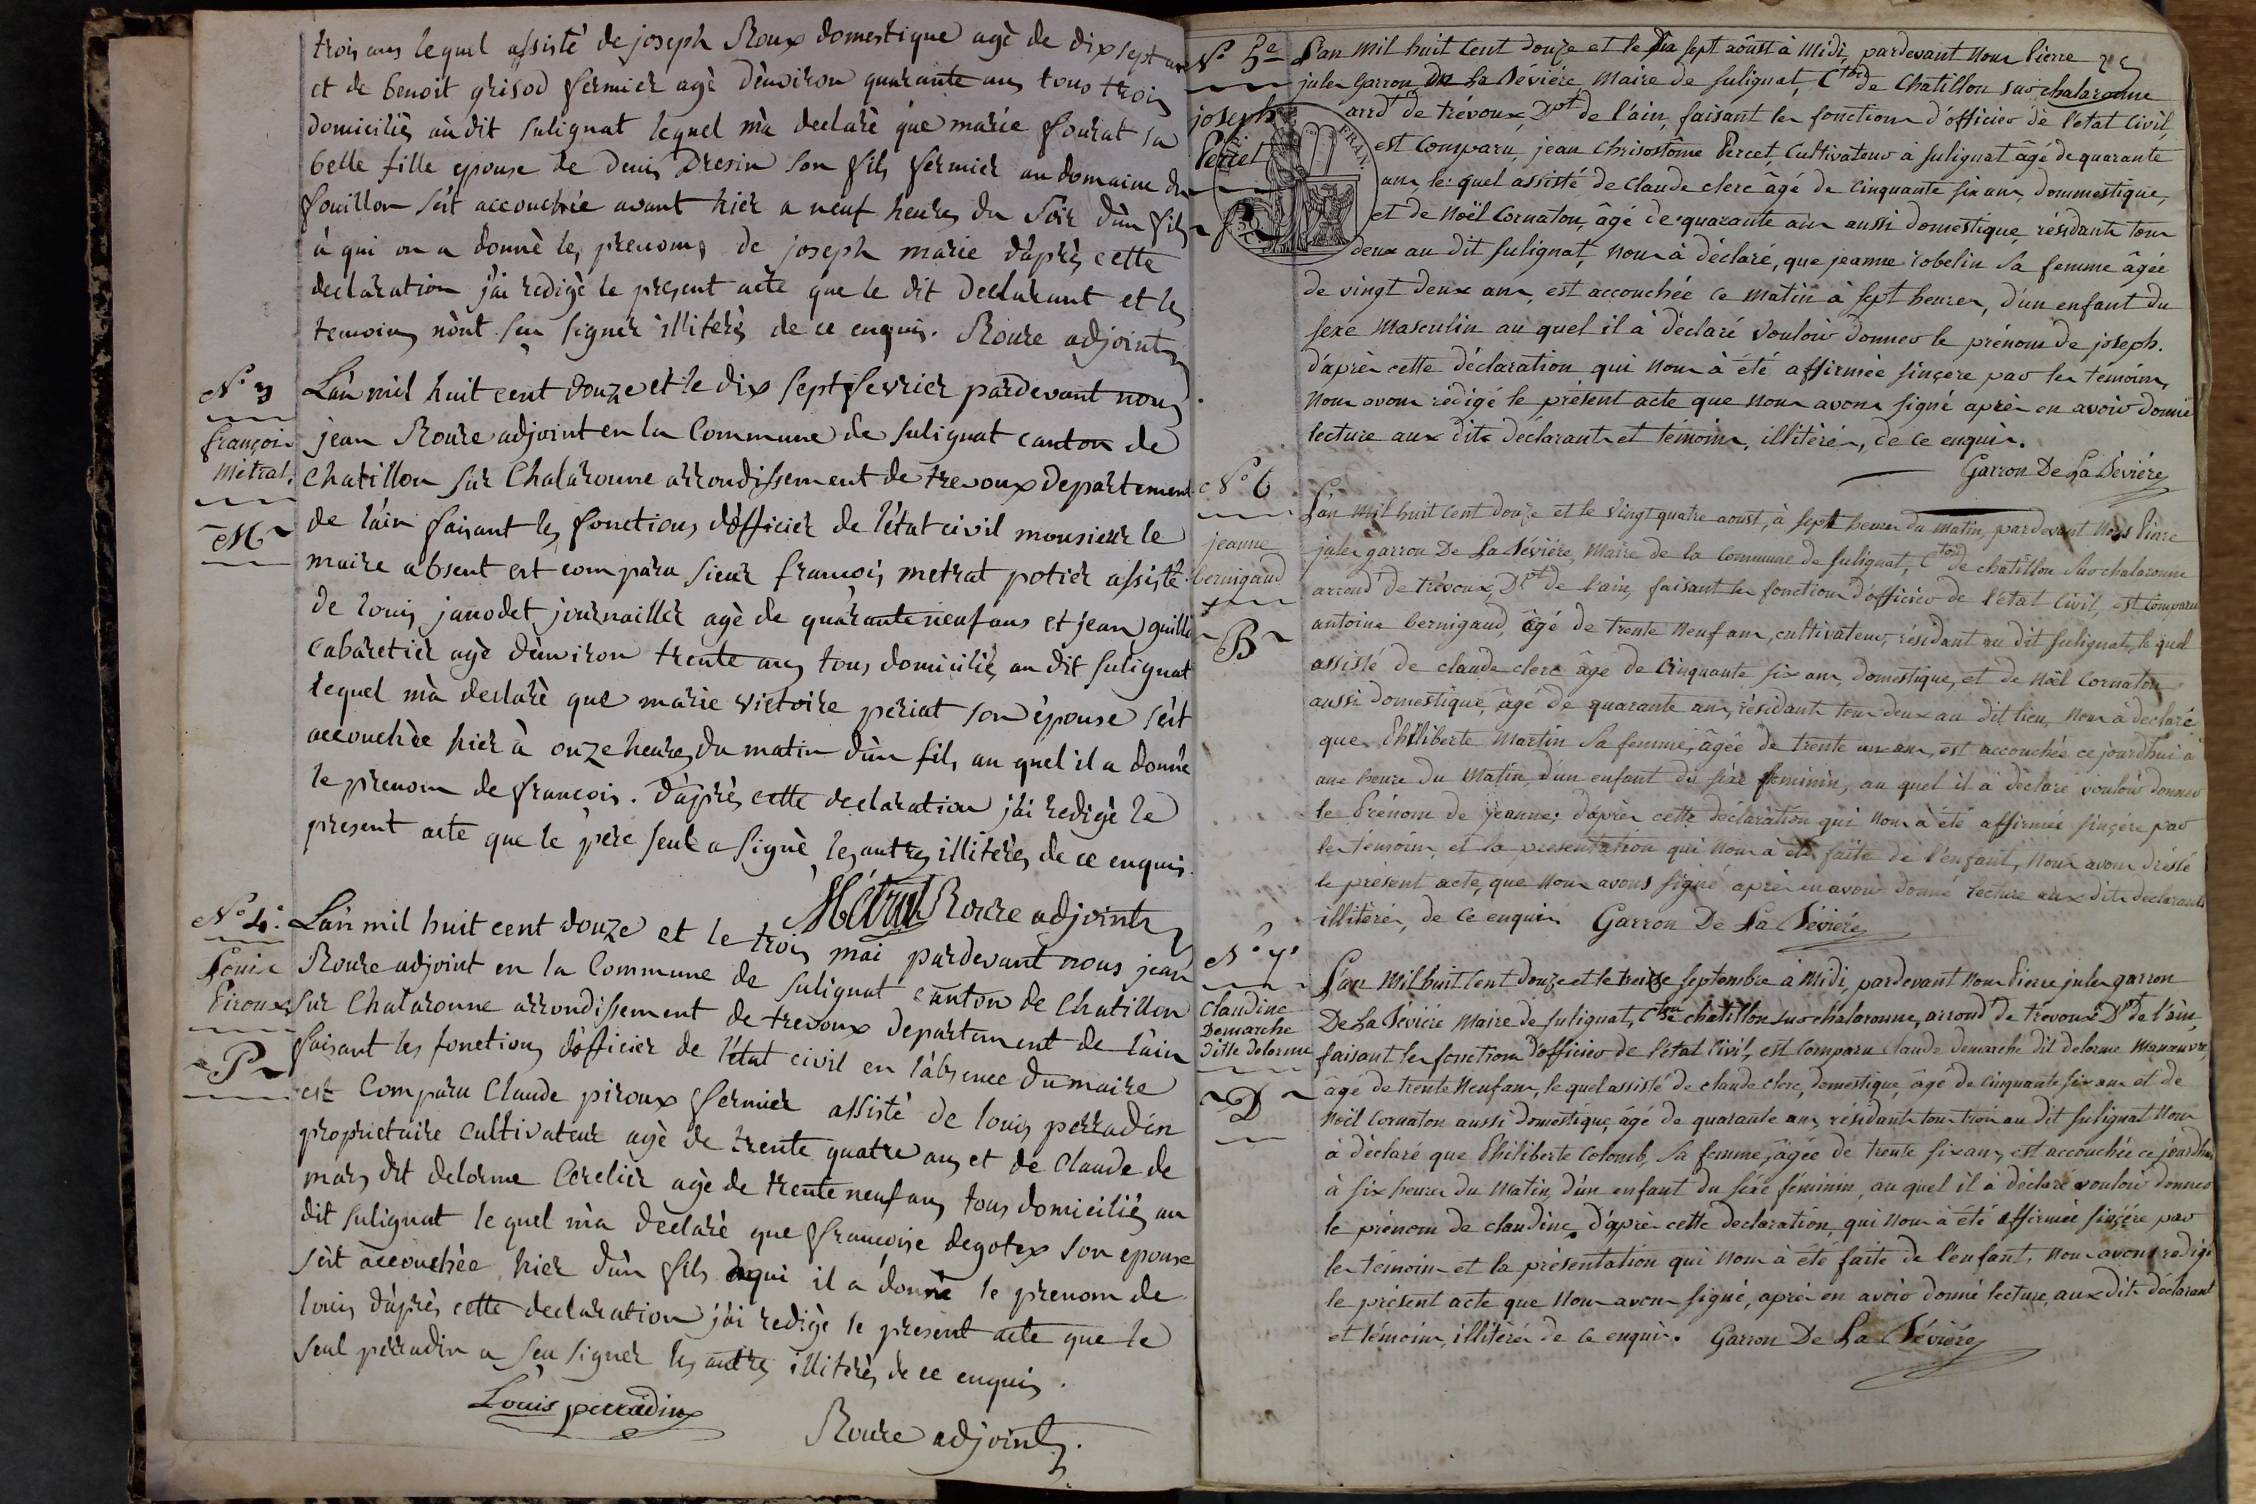 trois ans lequel assisté de joseph Roux domestique agè de dix sept ans
et de benoit grisod fermier agè d'environ quarante ans tous trois
domiciliès audit sulignat lequel m'a declarè que marie fourat sa
belle fille epouse de denis Dresin son fils fermier au domaine du
fouillon s'est accouchèe avant hier a neuf heures du soir d'un fils
à qui on a donnè les prenoms de joseph marie d'après cette
declaration j'ai redigè le present acte que le dit declarant et les
temoins n'ont seu signer illiterès de ce enquis. Roure adjoint
N° 3
françois
métrat.
M
L'an mil huit cent douze et le dix sept fevrier pardevant nous
jean Roure adjoint en la Commune de sulignat canton de
chatillon sur Chalaronne arrondissement de trevoux departement
de l'ain faisant les fonctions d'officier de l'état civil monsieur le
maire absent est comparu sieur françois metrat potier assistè
de louis janodet journaillier agè de quarante neuf ans et jean guille
cabaretier agè d'environ trente ans tous domiciliès au dit sulignat
lequel m'a declarè que marie victoire periat son épouse s'est
accouchèe hier à onze heures du matin d'un fils au quel il a donnè
le prenom de françois. D'après cette declaration j'ai redigè le
present acte que le père seul a signè les autres illiterès de ce enquis.
Métrat Roure adjoint
N° 4.
Louis
Piroux
P
L'an mil huit cent douze et le trois mai pardevant nous jean
Roure adjoint en la Commune de sulignat canton de Chatillon
sur Chalaronne arrondissement de trevoux departement de l'ain
faisant les fonctions d'officier de l'état civil en l'absence du maire
est Comparu Claude piroux fermier assistè de louis perradin
proprietaire cultivateur agè de trente quatre ans et de Claude de
mars dit delorme Cerclier agè de trente neuf ans tous domiciliès au
dit sulignat lequel m'a dèclarè que francoise degotex son epouse
s'est accouchèe hier d'un fils à qui il a donnè le prenom de
louis d'après cette declaration j'ai redigè le present acte que le
seul perradin a seu signer les autres illiterès de ce enquis.
Louis perradin
Roure adjoint.
N° 5e
joseph
Percet
P
L'an mil huit cent douze et le dix sept aôust à midi, pardevant nous Pierre
jules Garron de La Sévière, Maire de sulignat, Cton de Chatillon sur chalaronne
arrdt de trévoux, Dpt de l'ain, faisant les fonctions d'officier de l'état civil,
est comparu, jean chrisostôme Percet, Cultivateur à sulignat âgé de quarante
ans, le quel assisté de claude clerc âgé de cinquante six ans, dommestique,
et de Noël Cornaton, âgé de quarante ans aussi domestique, résidants tous
deux au dit sulignat, nous à déclaré, que jeanne robelin sa femme âgée
de vingt deux ans, est accouchée ce matin à sept heures, d'un enfant du
sexe masculin au quel il à déclaré vouloir donner le prénom de joseph.
d'après cette déclaration qui nous à été affirmée sinçere par les témoins,
nous avons rédigé le présent acte que nous avons signé après en avoir donné
lecture aux dits déclarant et témoins, illitérés, de ce enquis.
Garron De La Sévière
N° 6
jeanne
bernigaud
B
L'an mil huit cent douze et le vingt quatre aoust, à sept heures du matin, pardevant Nous Pierre
jules garron De La Sévière, Maire de la Commune de sulignat, Cton de chatillon sur chalaronne
arrond de trévoux, Dpt de l'ain, faisant les fonctions d'officier de l'état civil, est comparu
antoine bernigaud, âgé de trente neuf ans, cultivateur, résidant au dit sulignat, le quel
assisté de claude clerc âge de cinquante six ans, domestique, et de Nöel Cornaton
aussi domestique, âgé de quarante ans, résidants tous deux au dit lieu, nous à déclaré
que Philiberte Martin sa femme, âgée de trente un ans, est accouchée ce jourdhui à
une heure du matin, d'un enfant du séxe feminin, au quel il à déclaré vouloir donner
le Prénom de jeanne; d'après cette déclaration qui nous à été affirmée sinçére par
les témoins, et la presentation qui nous à été faîte de l'enfant, nous avons dressé
le present acte, que nous avons signé après en avoir donné lecture aux dits declarants
illitérés, de ce enquis Garron De La Sévière
N° 7
Claudine
Demarche
dille delorme
D
L'an mil huit cent douze et le treize septembre à Midi, pardevant nous Pierre jules garron
De La Sévière Maire de sulignat, Cton de chatillon sur chalaronne, arrond de trévoux Dpt de l'ain,
faisant les fonctions d'officier de l'état civil, est comparu claude demarche dit delorme manœuvre,
âgé de trente neuf ans, le quel assisté de claude clerc, domestique, âgé de cinquante six ans et de
Noël Cornaton aussi domestique, âgé de quarante ans, résidants tous trois au dit sulignat nous
à déclaré que Philiberte Colomb, sa femme, âgée de trente six ans, est accouchée ce jourdhui
à six heures du matin, d'un enfant du séxe féminin, au quel il à déclaré vouloir donner
le prénom de claudine, d'après cette declaration, qui nous à été affirmée sinçére par
les témoins et la présentation qui nous à été faite de l'enfant, nous avons redigé
le présent acte que nous avons signé, après en avoir donné lecture, aux dits déclarant
et témoins, illitérés de ce enquis. Garron De La Sévière